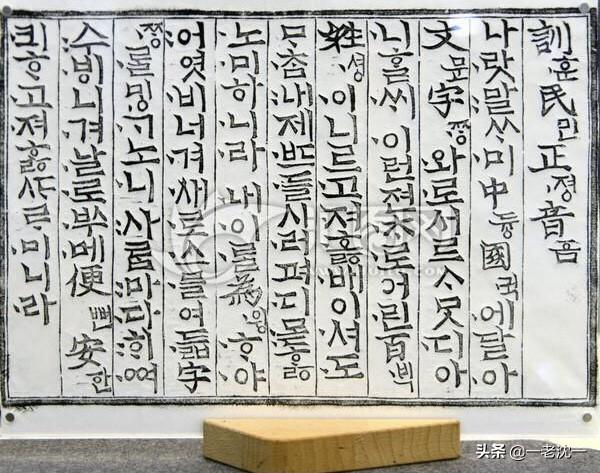 訓훈民민正졍音음
나랏말ᄊᆞ미中듕國귁에달아
文문字ᄍᆞᆼ와로서르ᄉᆞᄆᆞᆺ디아
니ᄒᆞᆯᄊᆡ이런젼ᄎᆞ로어린百ᄇᆡᆨ
姓셩이니르고져ᄒᆞᇙ배이셔도
ᄆᆞᄎᆞᆷ내제ᄠᅳ들시러펴디몯ᄒᆞᇙ
노미하니라내이ᄅᆞᆯ爲윙ᄒᆞ야
어엿비너겨새로스믈여듧字
ᄍᆞᆼᄅᆞᆯᄆᆡᇰᄀᆞ노니사ᄅᆞᆷ마다ᄒᆡᅇᅧ
수ᄫᅵ니겨날로ᄡᅮ메便뼌安한
킈ᄒᆞ고져ᄒᆞᇙᄯᆞᄅᆞ미니라
头条 @一老沈一